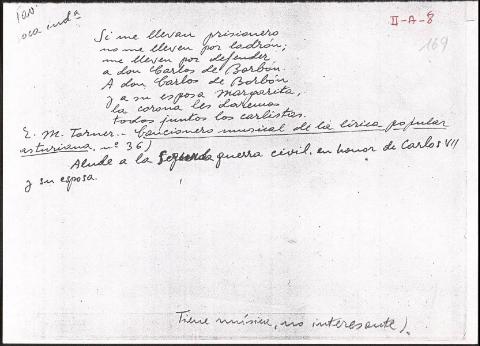 II-A-8
169
Si me llevan prisionero
no me lleven por ladrón;
me lleven por defender
a don Carlos de Borbón.
A don Carlos de Borbón
y a su esposa Margarita,
la corona les daremos
todos juntos los carlistas.
E. M. Torner.- Cancionero musical de la lírica popular
asturiana, nº 36)
Alude a la Segunda guerra civil, en honor de Carlos VII
y su esposa.
Tiene música, no interesante).